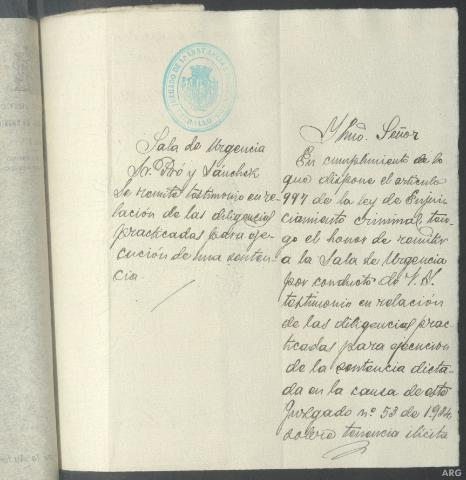 JUZGADO DE 1ª INSTANCIA
Sala de Urgencia
Sr. Pró y Sánchez
Se remite testimonio en re-
lación de las diligencias
practicadas para eje-
cución de una senten-
cia.
Ylmo. Señor
En cumplimiento de lo
que dispone el artículo
997 de la ley de Enjui-
ciamiento criminal, ten-
go el honor de remitir
a la Sala de Urgencia
por conducto de V. S.
testimonio en relación
de las diligencias prac-
ticadas para ejecucion
de la sentencia dicta-
da en la causa de este
Juzgado nº 53 de 1.934
sobre tenencia ilícita
ARG